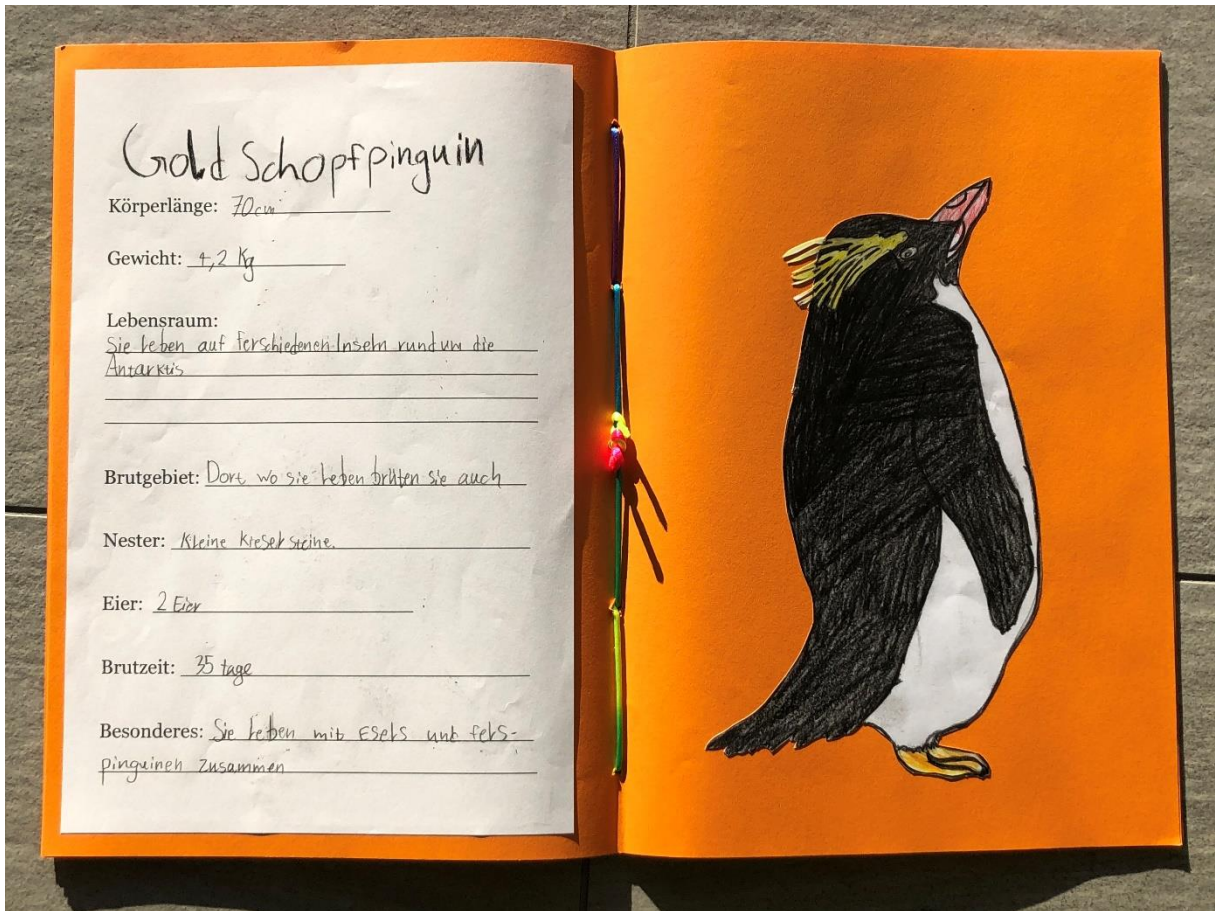 Gold Schopfpinguin
Körperlänge: 70cm
Gewicht: 4,2 Kg
Lebensraum:
Sie leben auf ferschiedenen Inseln rund um die
Antarktis
Brutgebiet: Dort wo sie leben brüten sie auch
Nester: Kleine Kieselsteine.
Eier: 2 Eier
Brutzeit: 35 tage
Besonderes: Sie leben mit Esels und fels-
pinguinen zusammen